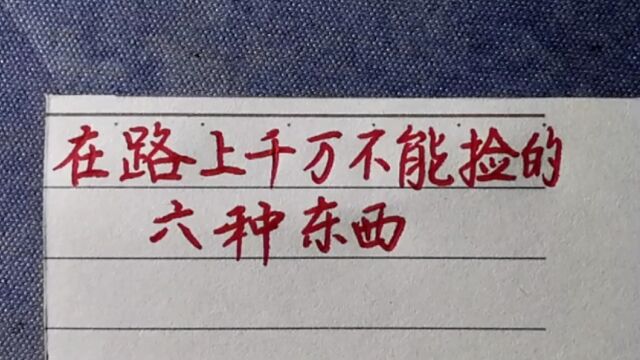 在路上千万不能捡的
六种东西